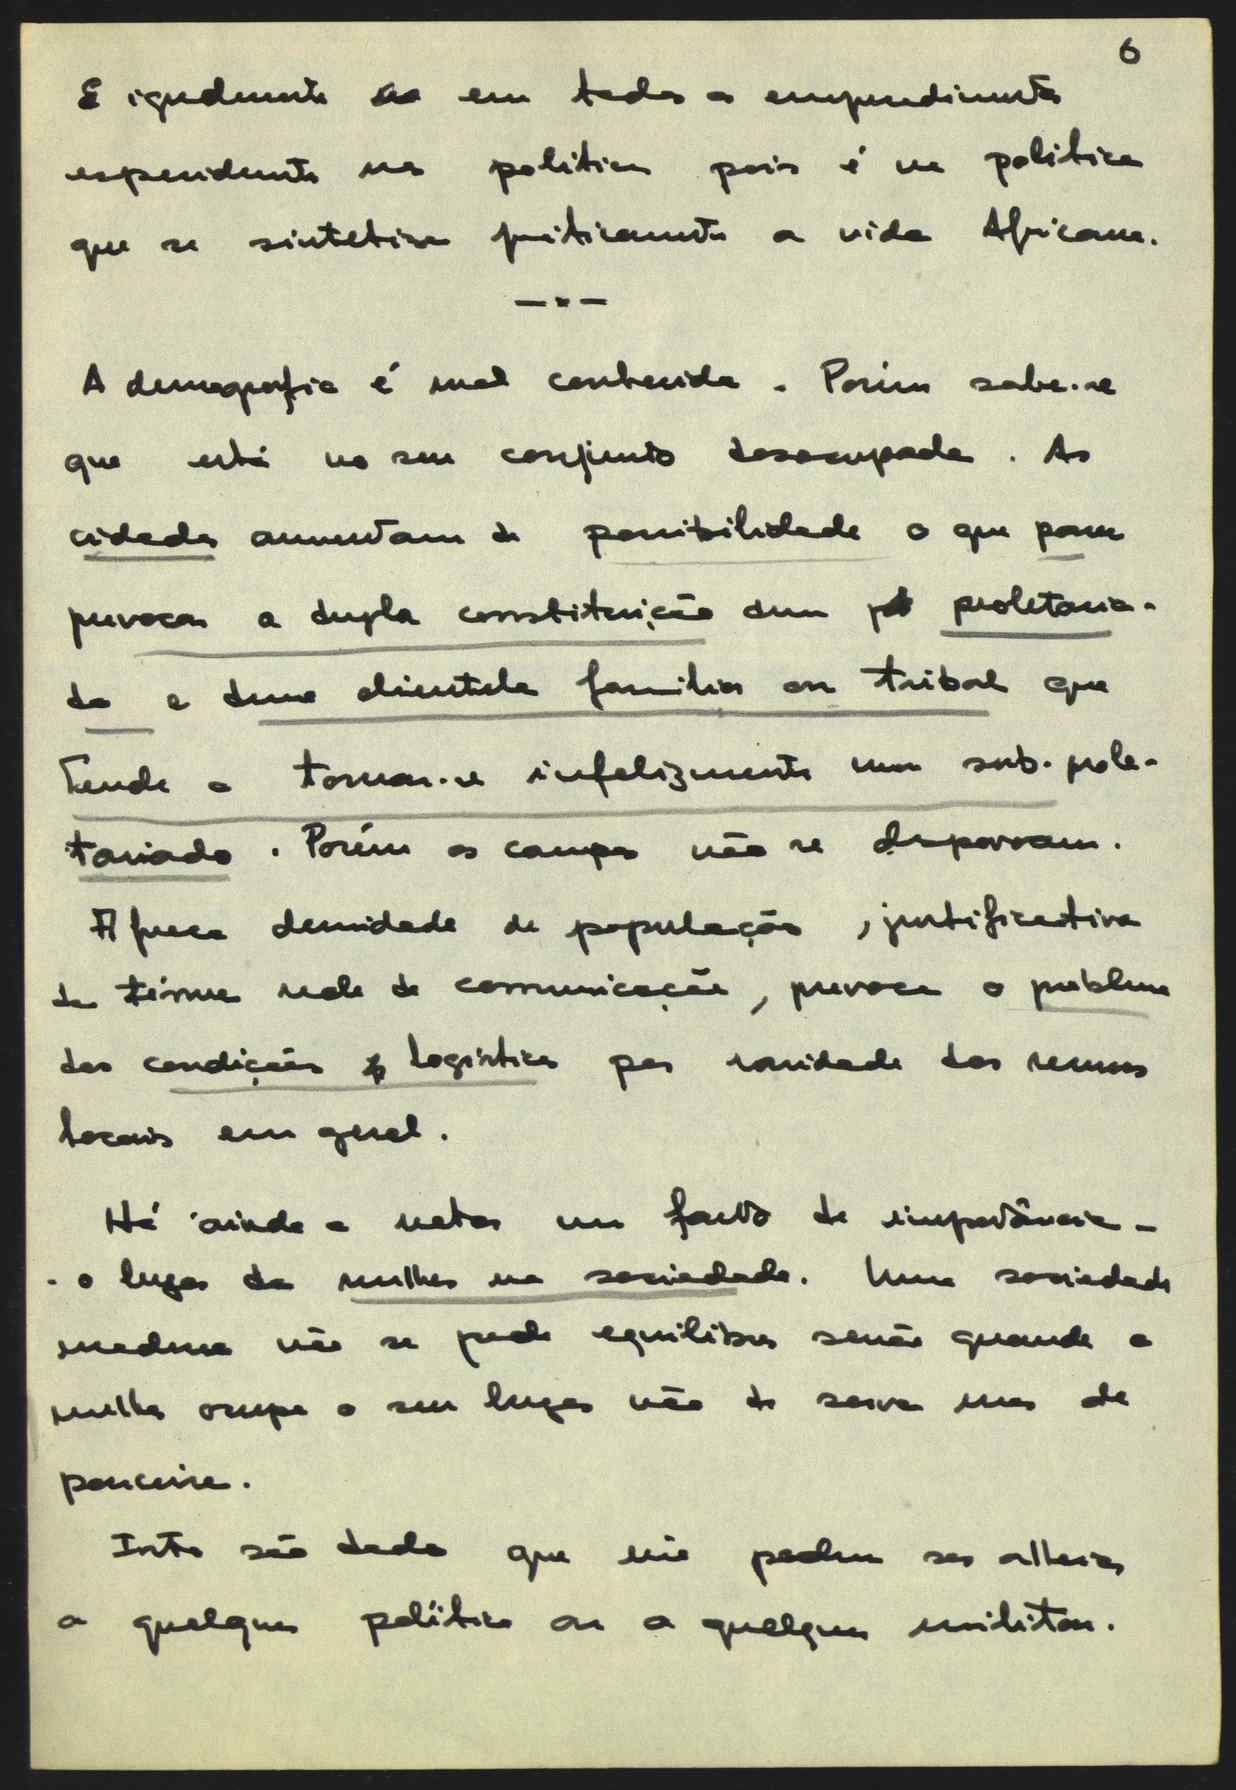 6
E igualmente em todos os empreendimentos
na politica pois é na politica
que se sintetisa praticamente a vida Africana.
—"—
A demografia é mal conhecida. Porém sabe-se
que está no seu conjunto desocupada. As
cidades aumentam de possibilidade o que parece
provocar a dupla constituição dum proletaria-
do e duma clientela familiar ou tribal que
tende a tornar-se infelizmente num sub-prole-
tariado. Porém os campos não se despovoam.
A fraca densidade de população, justificativa
da ténue rede de comunicação, provoca o problema
das condições logisticas por raridade dos recursos
locais em geral.
Há ainda a notar um facto de importância -
- o lugar da mulher na sociedade. Uma sociedade
moderna não se pode equilibrar senão quando a
mulher ocupa o seu lugar não de serva mas de
parceira.
Isto são dados que não podem ser alheios
a qualquer politico ou a qualquer militar.